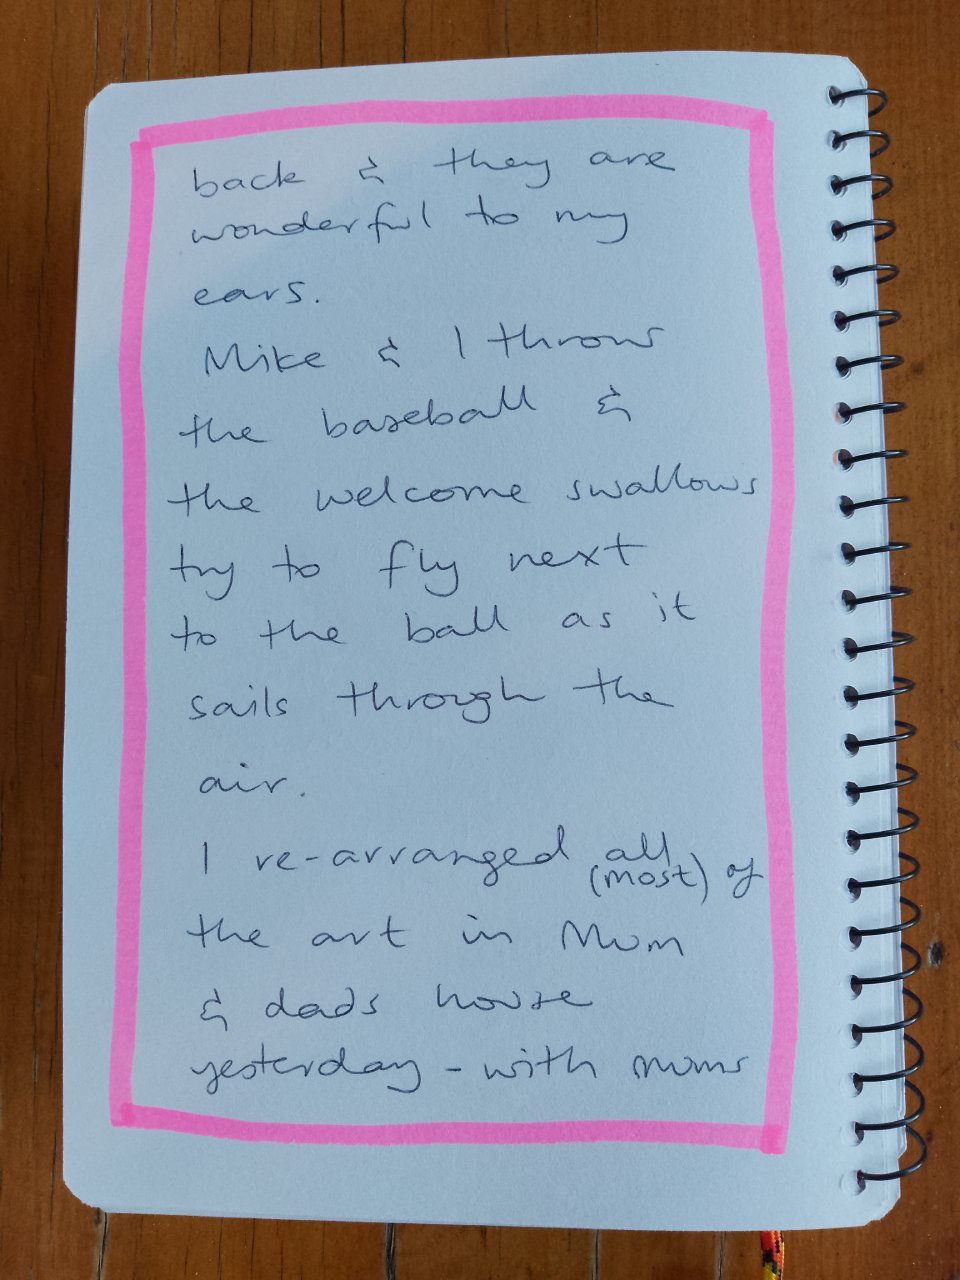 back & they are
wonderful to my
ears.
Mike & I throw
the baseball &
the welcome swallows
try to fly next
to the ball as it
sails through the
air.
I re-arranged all (most) of
the art in Mum
& dads house
yesterday - with mums